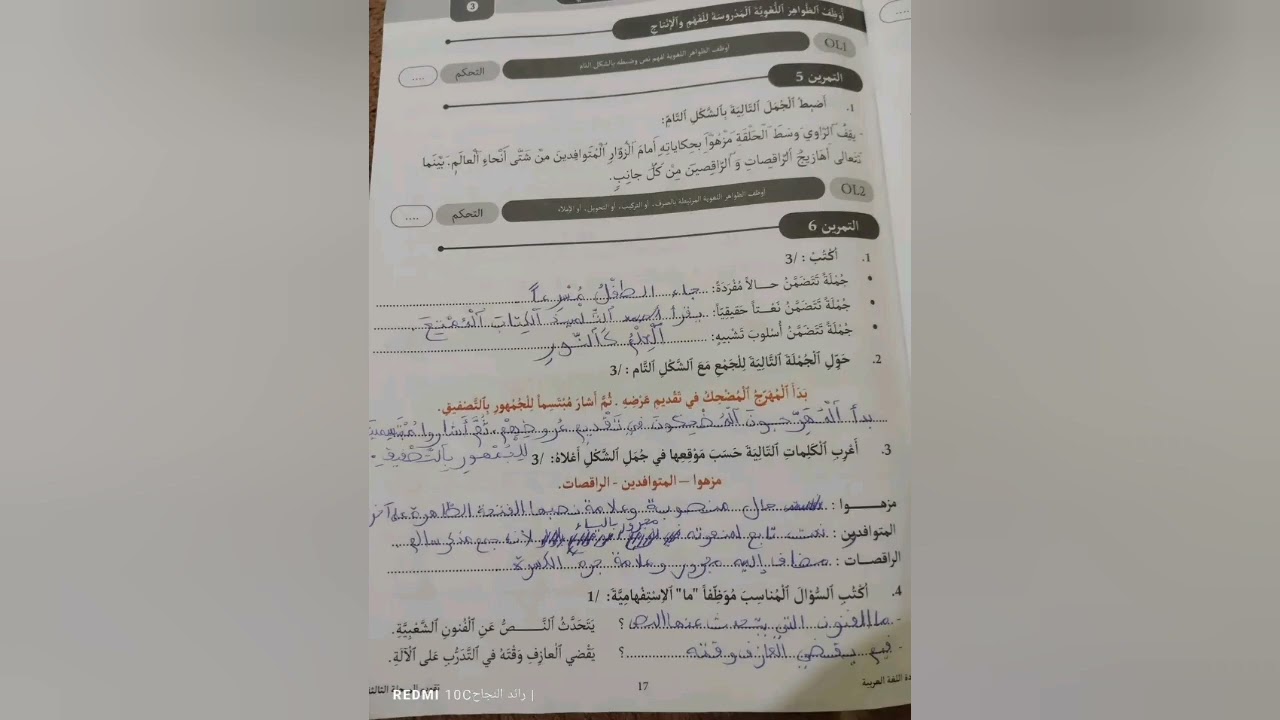 3
أُوَظِّفُ الظَّواهِرَ اللُّغَوِيَّةَ الْمَدْروسَةَ لِلْفَهْمِ وَالْإِنْتاجِ
OL1
أوظف الظواهر اللغوية لفهم نص وضبطه بالشكل التام
التحكم
....
التمرين 5
1. أَضْبِطُ الْجُمَلَ التَّالِيَةَ بِالشَّكْلِ التَّامِّ:
- يقِفُ الرَّاوي وسَطَ الحَلْقَةِ مَزْهُوّاً بحكاياتِهِ أمامَ الزُّوّارِ الْمُتَوافِدينَ منْ شَتَّى أَنْحاءِ العالَمِ، بَيْنَما
تتعالى أهازيجُ الرَّاقِصاتِ وَ الرَّاقِصينَ مِنْ كُلِّ جانِبٍ.
OL2
أوظف الظواهر اللغوية المرتبطة بالصرف، أو التركيب، أو التحويل، أو الإملاء
التحكم
....
التمرين 6
1. أَكْتُبُ : /3
• جُمْلَةً تَتَضَمَّنُ حـالاً مُفْرَدَةً: جاء الطفلُ مُسْرِعاً
• جُمْلَةً تَتَضَمَّنُ نَعْـتـاً حَقيقِيّاً: يقرأ التلميذ الكتابَ الْمُمْتِعَ
• جُمْلَةً تَتَضَمَّنُ أُسْلوبَ تَشْبيهٍ: الْعِلْمُ كَالنّورِ
2. حَوِّلِ الْجُمْلَةَ التَّالِيَةَ لِلْجَمْعِ مَعَ الشَّكْلِ التَّام : /3
بَدَأَ الْمُهَرِّجُ الْمُضْحِكُ في تَقْديمِ عَرْضِهِ . ثُمَّ أَشارَ مُبْتَسِماً لِلْجُمْهورِ بِالتَّصْفيقِ.
بدأَ الْمُهَرِّجونَ الْمُضْحِكونَ في تَقْديمِ عُروضِهِمْ، ثُمَّ أشاروا مُبْتَسِمينَ
لِلْجُمْهورِ بِالتَّصْفيقِ.
3. أَعْرِبِ الْكَلِماتِ التَّالِيَةَ حَسَبَ مَوْقِعِها في جُمَلِ الشَّكْلِ أَعْلاهُ: /3
مزهوا – المتوافدين - الراقصات.
مزهـــوا : حال منصوبة وعلامة نصبها الفتحة الظاهرة على آخر
المتوافدين : نعت تابع لمنعوته مجرور بالياء لأنه جمع مذكر سالم
الراقصـات : مضاف إليه مجرور وعلامة جره الكسرة
4. أَكْتُبِ السُّؤالَ الْمُناسِبَ مُوَظِّفاً "ما" الاِسْتِفْهامِيَّةَ: /1
- ما الفنون التي يتحدث عنها النص ؟ يَتَحَدَّثُ النَّـــصُّ عَنِ الْفُنونِ الشَّعْبِيَّةِ.
- فيم يقضي العازف وقته ؟ يَقْضي الْعازِفِ وَقْتَهُ في التَّدَرُّبِ عَلى الْآلَةِ.
17
REDMI 10C | رائد النجاح